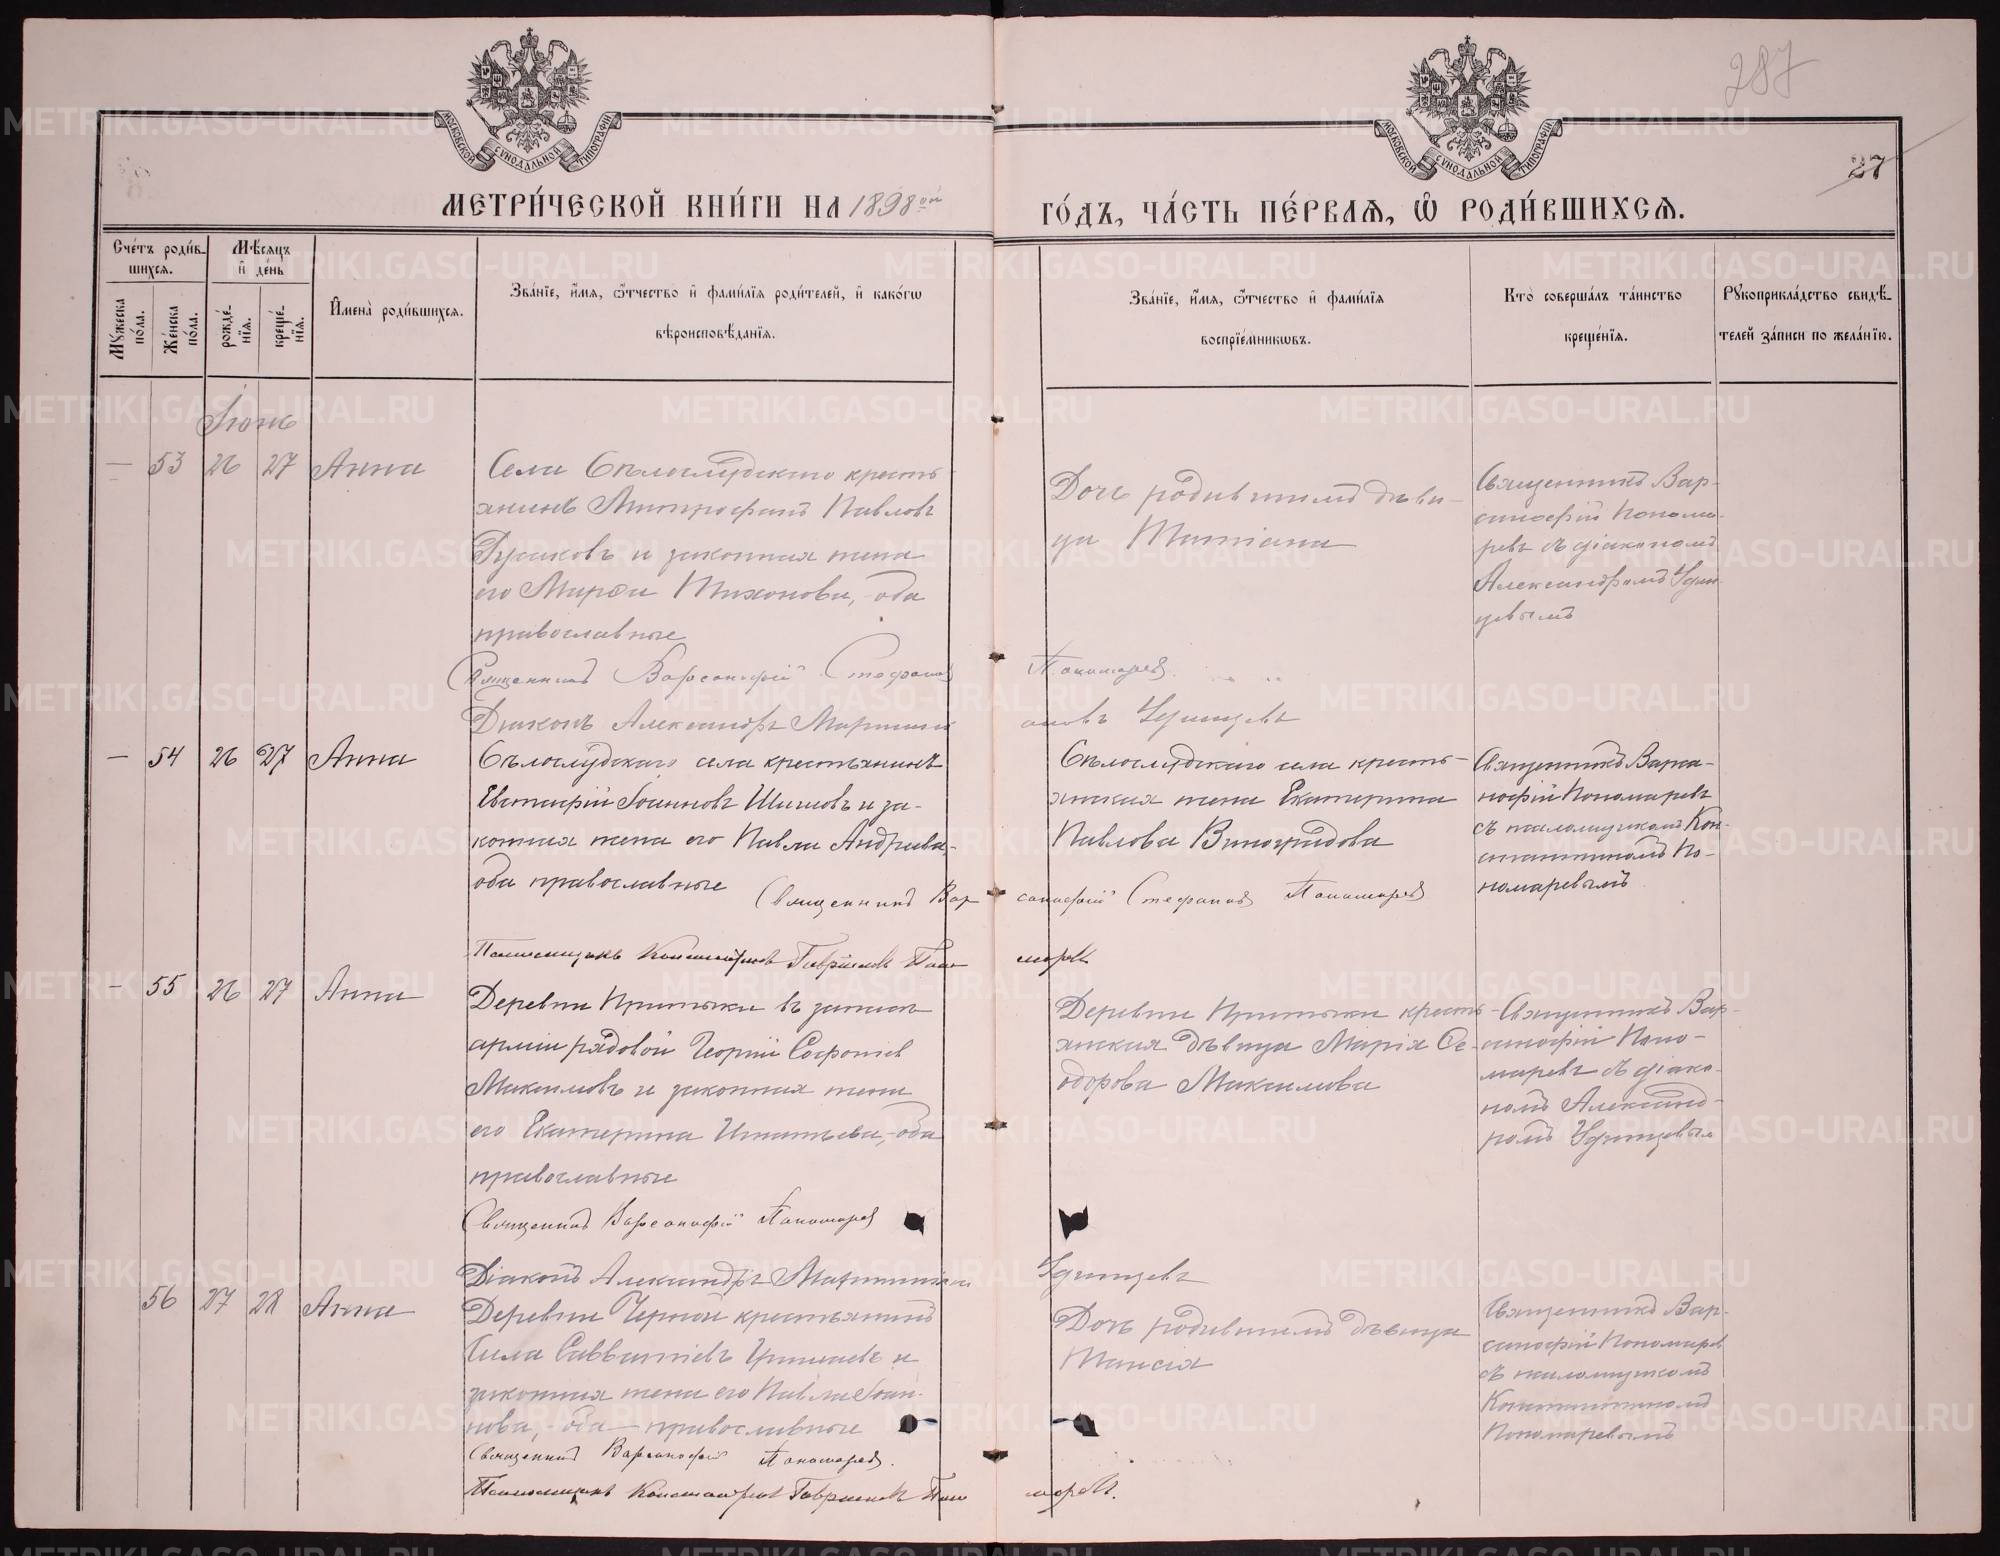 287
27
МОСКОВСКОЙ СѴНОДАЛЬНОЙ ТИПОГРАФІИ
МОСКОВСКОЙ СѴНОДАЛЬНОЙ ТИПОГРАФІИ
МЕТРИ́ЧЕСКОЙ КНИ́ГИ НА 1898ой
ГО́ДЪ, ЧА́СТЬ ПЕ́РВАЯ, Ѡ РОДИ́ВШИХСЯ.
Счетъ родив-
шихся.
Мужеска пола.
Женска пола.
Мѣсяцъ
и день
рожде-
нія.
креще-
нія.
Имена родившихся.
Званіе, имя, отчество и фамилія родителей, и какого
вѣроисповѣданія.
Званіе, имя, отчество и фамилія
воспріемниковъ.
Кто совершалъ таинство
крещенія.
Рукоприкладство свидѣ-
телей записи по желанію.
Іюнь
— 53 26 27 Анна
Села Бѣлослудскаго кресть
янинъ Митрофанъ Павловъ
и законная жена
его Марѳа Тихонова, оба
православные
Дочь родившимъ дѣви-
ца Татіана
Священникъ Вар-
санофій Понома-
ревъ съ діакономъ
Александромъ Удин-
цевымъ
Священникъ Варсанофій Стефановъ Пономаревъ
Діаконъ Александръ Мартиніановъ Удинцевъ
— 54 26 27 Анна
Бѣлослудскаго села крестьянинъ
Евстафій Іоанновъ Шишовъ и за-
конная жена его Павла Андреева,-
оба православные
Бѣлослудскаго села кресть-
янская жена Екатерина
Павлова Виноградова
Священникъ Варса-
нофій Пономаревъ
съ псаломщикомъ Кон-
стантиномъ По-
номаревымъ
Священникъ Варсанофій Стефановъ Пономаревъ
Псаломщикъ Константинъ Гавріиловъ Пономаревъ
- 55 26 27 Анна
Деревни Притыки въ запасѣ
арміи рядовой Георгій Софоніев
Максимовъ и законная жена
его Екатерина Игнатьева,-оба
православные
Деревни Притыки кресть-
янская дѣвица Марія Ѳе-
одорова Максимова
Священникъ Вар-
санофій Поно-
маревъ съ діако-
номъ Александ-
ромъ Удинцевым
Священникъ Варсанофій Пономаревъ
Діаконъ Александръ Мартиніан Удинцевъ
56 27 28 Анна
Деревни Черной крестьянинъ
Сила Савватіевъ и
законная жена его Павла Іоан-
нова,-оба православные
Дочь родившимъ дѣвица
Таисія
Священникъ Вар-
санофій Пономарев
съ псаломщикомъ
Константиномъ
Пономаревымъ
Священникъ Варсанофій Пономаревъ.
Псаломщикъ Константинъ Гавріиловъ Пономаревъ.
METRIKI.GASO-URAL.RU